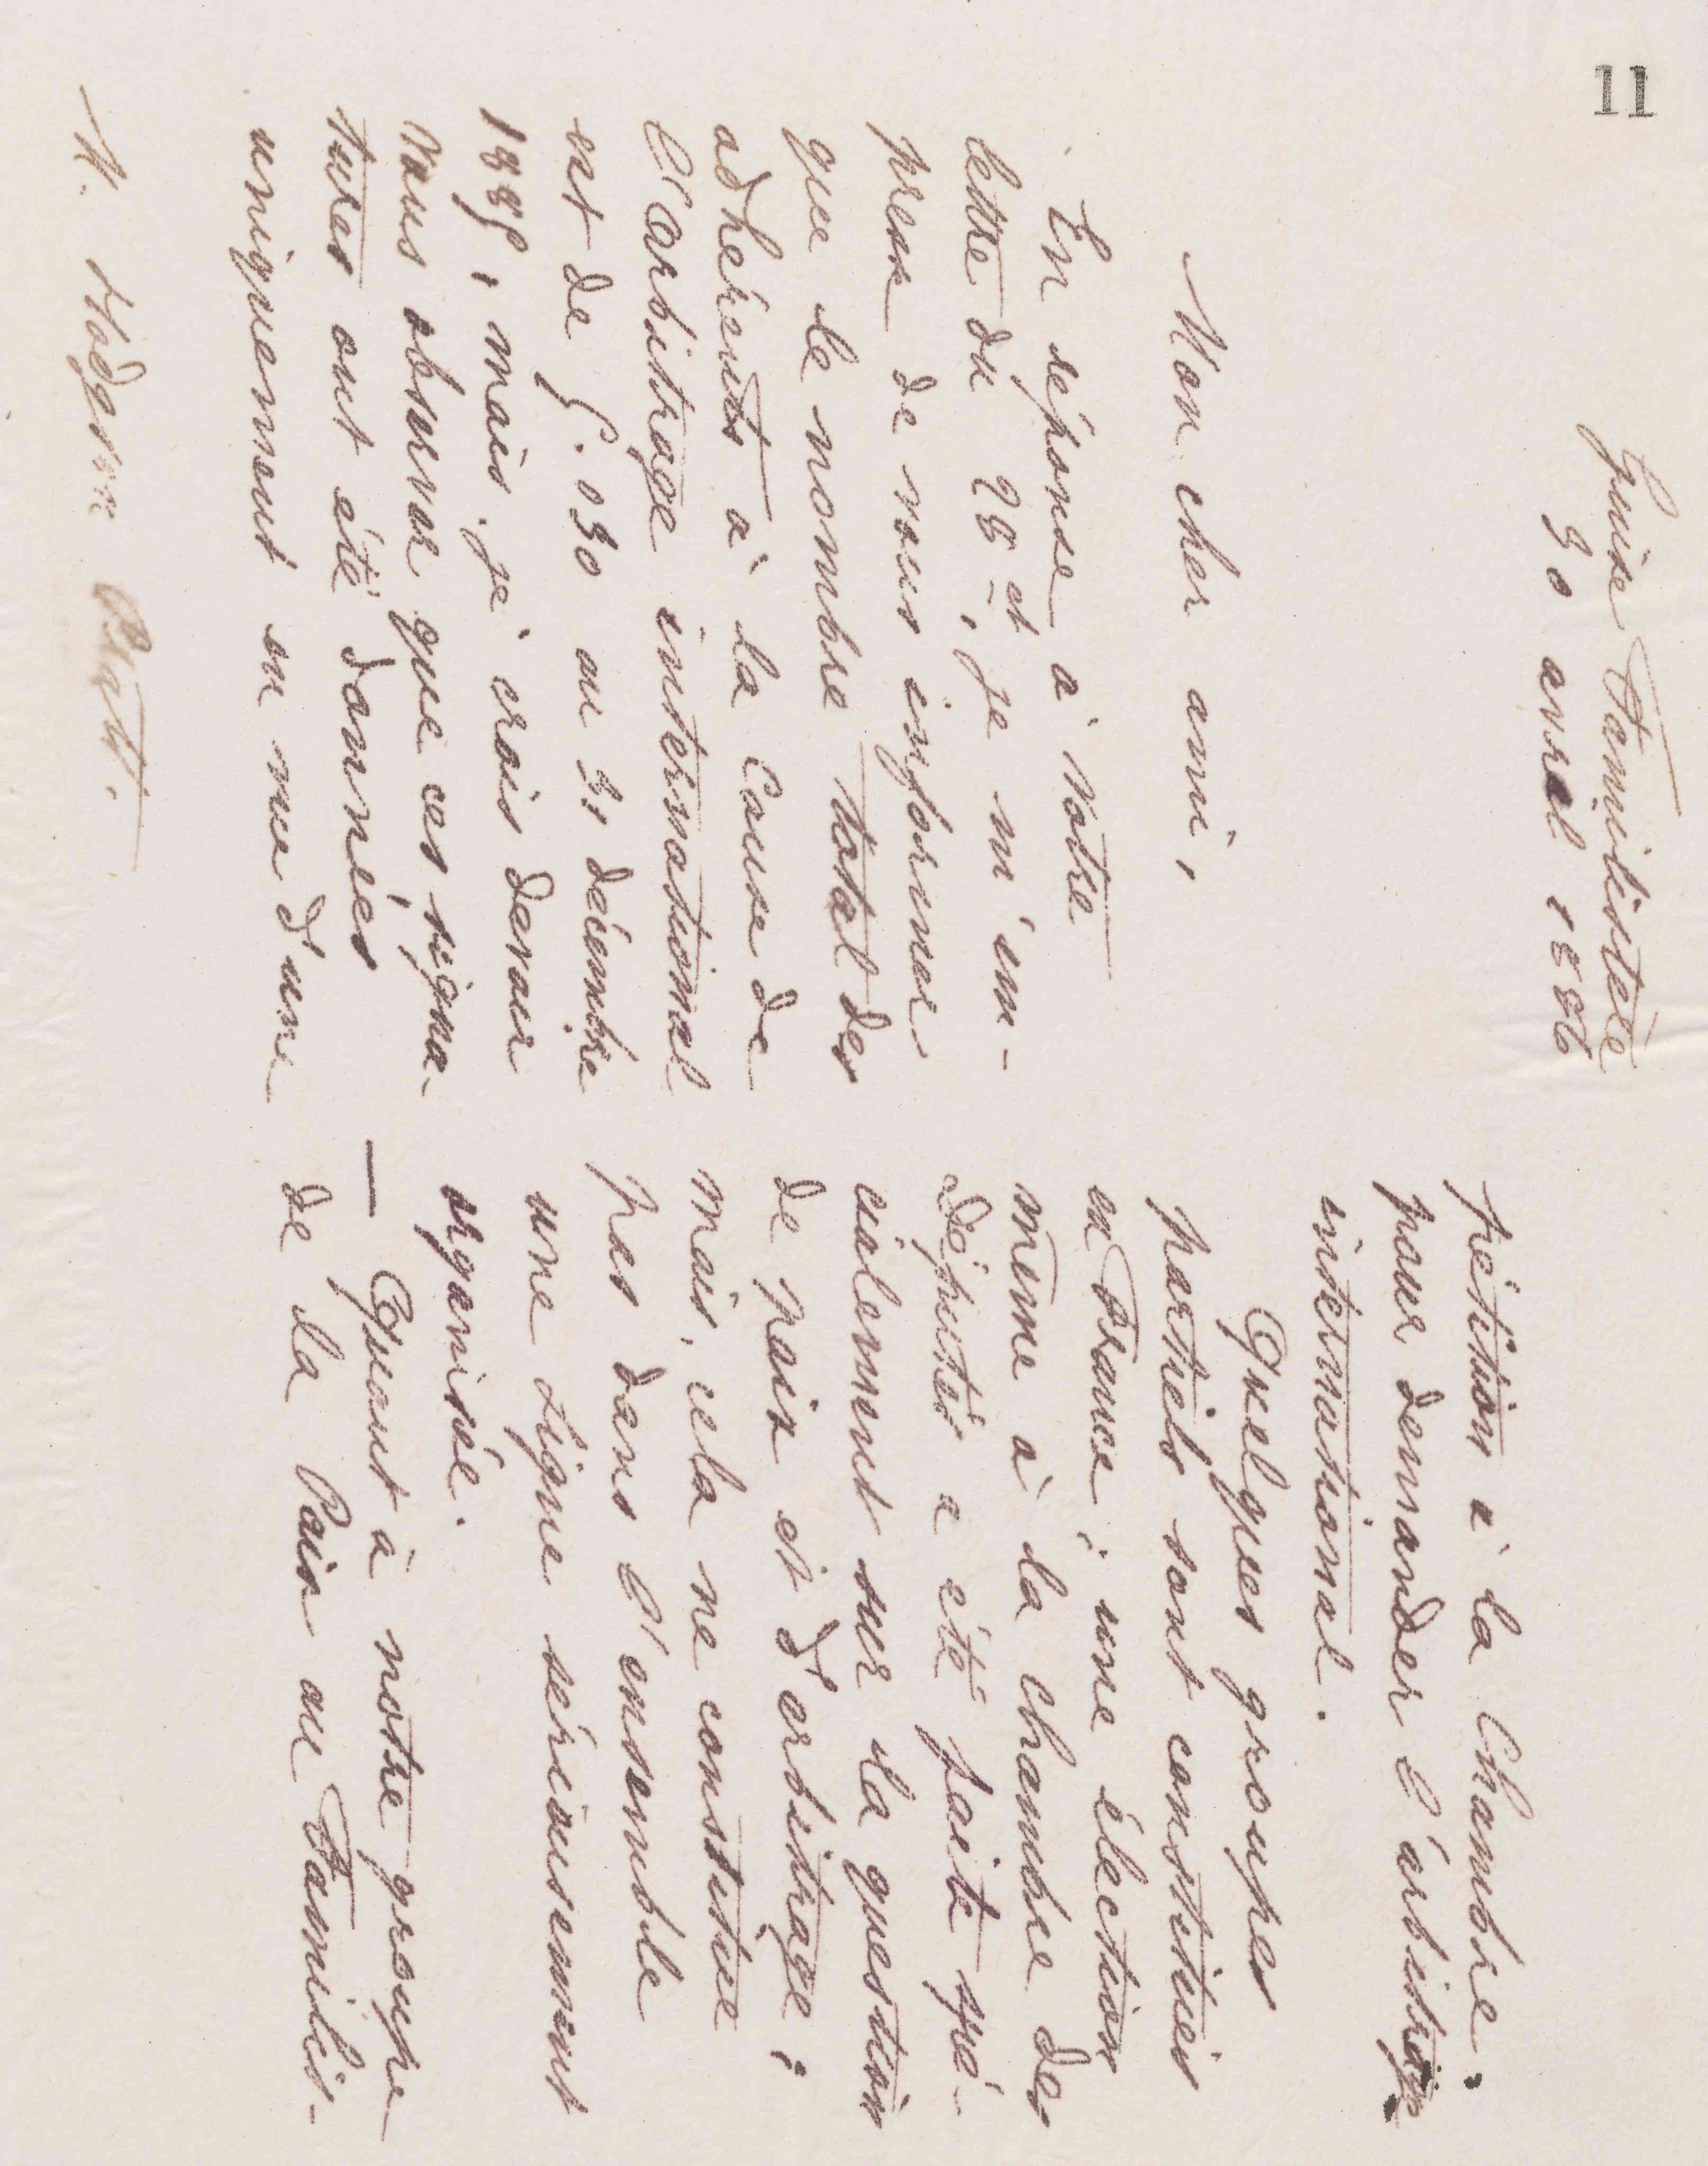 11
Guise Familistère
30 avril 1886
Mon cher ami,
En réponse à votre
lettre du 28 ct, je m'em-
presse de vous informer
que le nombre total des
adhérents à la Cause de
l'arbitrage international
est de 9.030 au 31 décembre
1885, mais je crois devoir
vous observer que ces signa-
tures ont été données
uniquement en vue d'une
M. Hodgson Pratt.
pétition à la Chambre
pour demander l'arbitrage
international.
Quelques groupes
partiels sont constitués
en France ; une élection
même à la chambre des
députés a été faite spé-
cialement sur la question
de paix et d'arbitrage ;
mais, cela ne constitue
pas dans l'ensemble
une Ligue sérieusement
organisée.
— Quant à notre groupe
de la Paix au Familis-